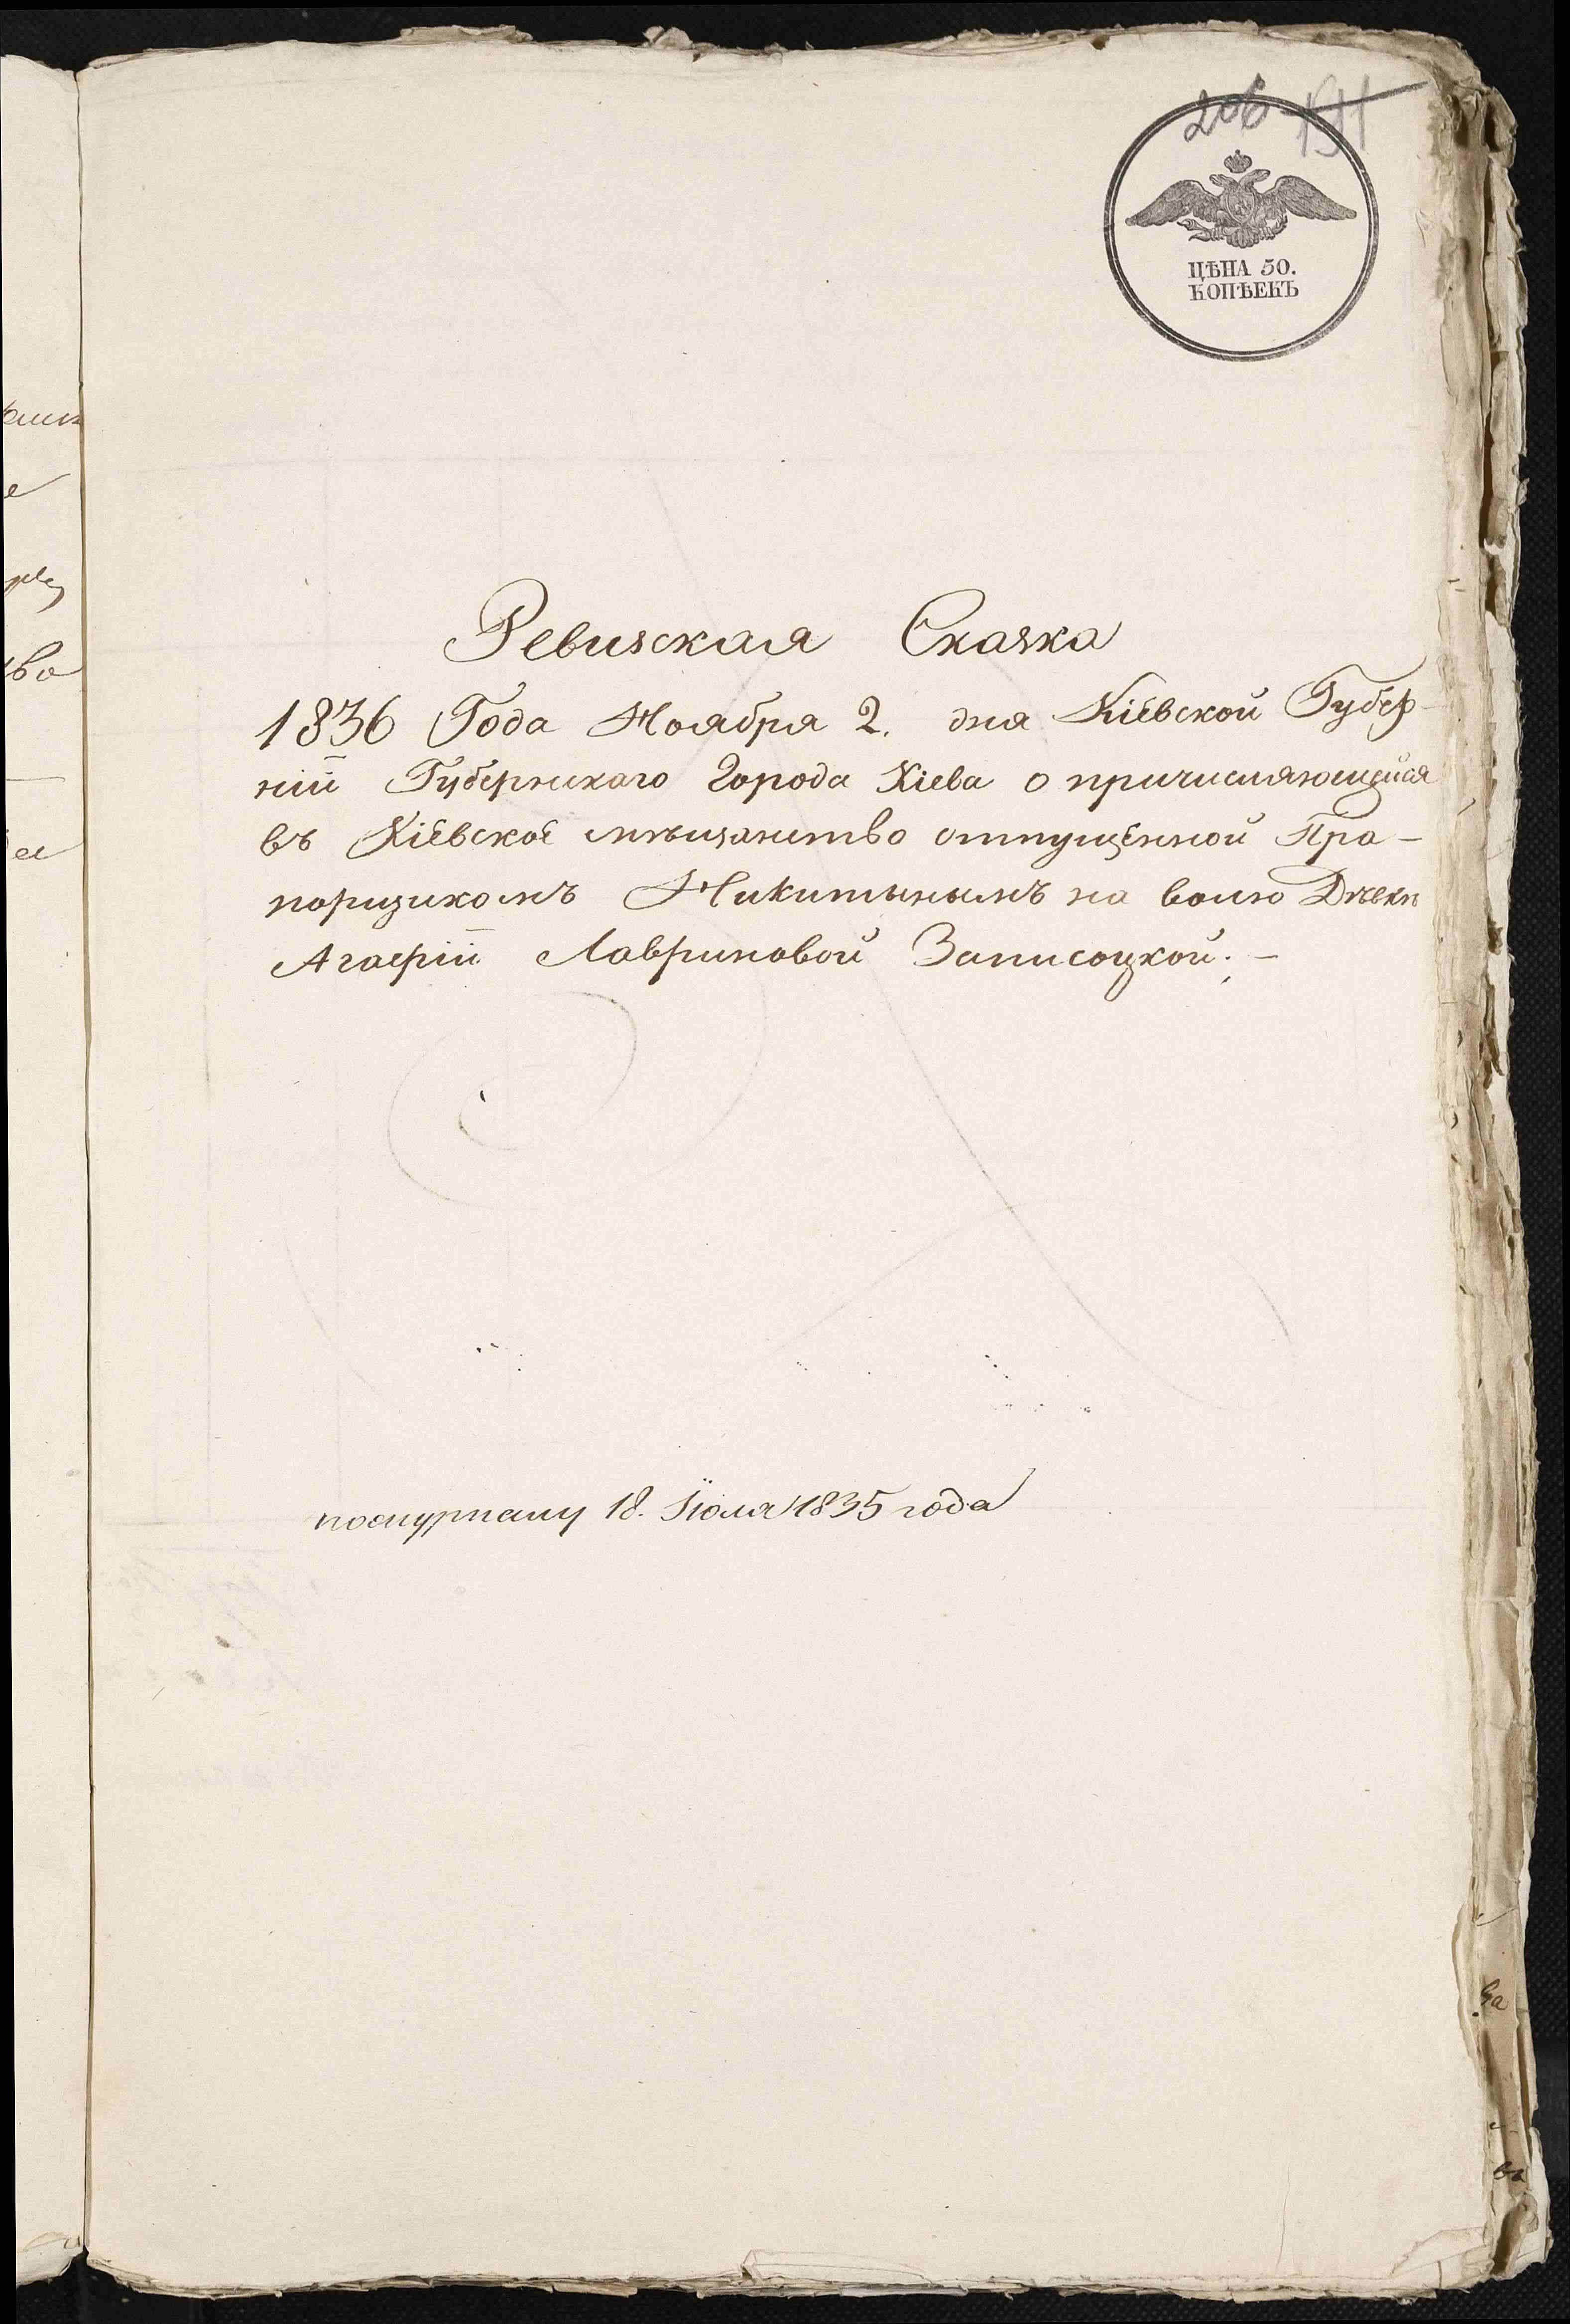 206 191
ЦѢНА 50.
КОПѢЕКЪ
Ревизская Сказка
1836 Года Ноября 2. дня Кіевской Губер-
ніи Губернскаго Города Кіева о причисляющейся
въ Кіевское мѣщанство отпущенной Пра-
порщикомъ Никитинымъ на волю Дѣвки
Агафіи Лавриновой Записоцкой. -
по журналу 18. Іюля 1835 года